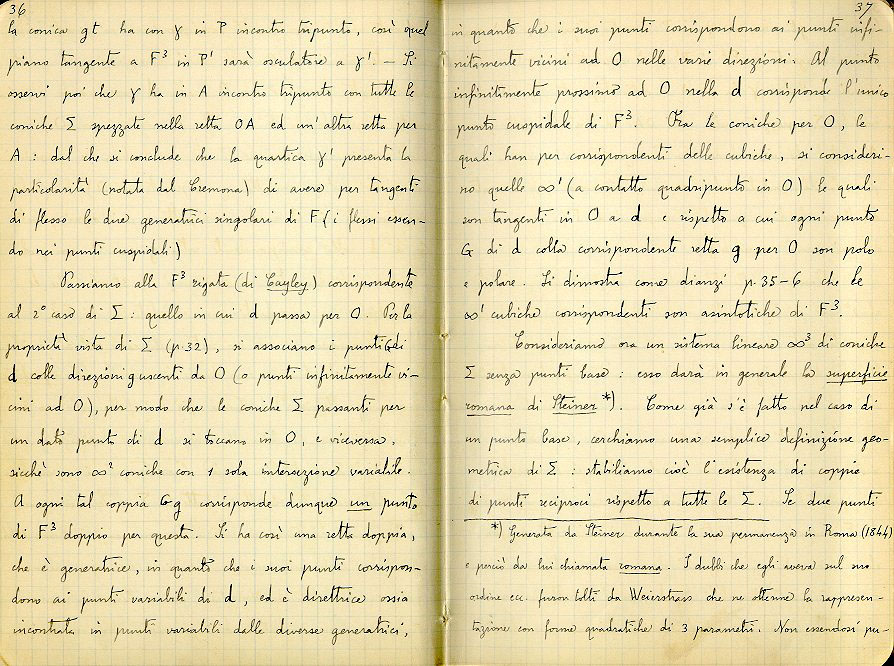 36
la conica gt ha con γ in P incontro tripunto, così quel
piano tangente a F³ in P' sarà osculatore a γ'. — Si
osservi poi che γ ha in A incontro tripunto con tutte le
coniche Σ spezzate nella retta OA ed un'altra retta per
A: dal che si conclude che la quartica γ' presenta la
particolarità (notata dal Cremona) di avere per tangenti
di flesso le due generatrici singolari di F (i flessi essen-
do nei punti cuspidali)
Passiamo alla F³ rigata (di Cayley) corrispondente
al 2º caso di Σ: quello in cui d passa per O. Per la
proprietà vista di Σ (p.32), si associano i punti G di
d colle direzioni g uscenti da O (o punti infinitamente vi-
cini ad O), per modo che le coniche Σ passanti per
un dato punto di d si toccano in O, e viceversa,
sicchè sono ∞² coniche con 1 sola intersezione variabile.
A ogni tal coppia Gg corrisponde dunque un punto
di F³ doppio per questa. Si ha così una retta doppia,
che è generatrice, in quanto che i suoi punti corrispon-
dono ai punti variabili di d, ed è direttrice ossia
incontrata in punti variabili dalle diverse generatrici,
37
in quanto che i suoi punti corrispondono ai punti infi-
nitamente vicini ad O nelle varie direzioni. Al punto
infinitamente prossimo ad O nella d corrisponde l'unico
punto cuspidale di F³. Fra le coniche per O, le
quali han per corrispondenti delle cubiche, si consideri-
no quelle ∞¹ (a contatto quadripunto in O) le quali
son tangenti in O a d e rispetto a cui ogni punto
G di d colla corrispondente retta g per O son polo
e polare. Si dimostra come dianzi p.35-6 che le
∞¹ cubiche corrispondenti son asintotiche di F³.
Consideriamo ora un sistema lineare ∞³ di coniche
Σ senza punti base: esso darà in generale la superficie
romana di Steiner *). Come già s'è fatto nel caso di
un punto base, cerchiamo una semplice definizione geo-
metrica di Σ: stabiliamo cioè l'esistenza di coppie
di punti reciproci rispetto a tutte le Σ. Se due punti
*) Generata da Steiner durante la sua permanenza in Roma (1844)
e perciò da lui chiamata romana. I dubbi che egli aveva sul suo
ordine ecc. furon tolti da Weierstrass che ne ottenne la rappresen-
tazione con forme quadratiche di 3 parametri. Non essendosi pu-